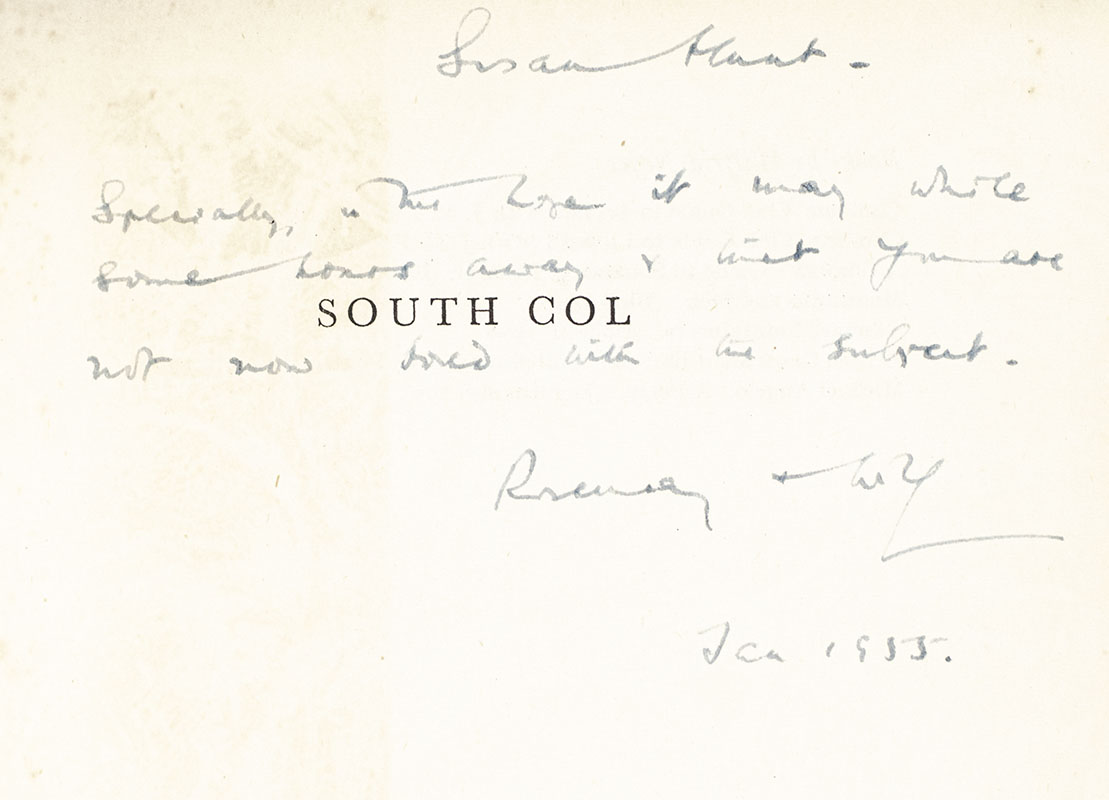 Susan Hunt -
Specially, in the hope it may while
some hours away & that you are
SOUTH COL
not now bored with the subject.
Rosemary + Wilf
Jan 1955.